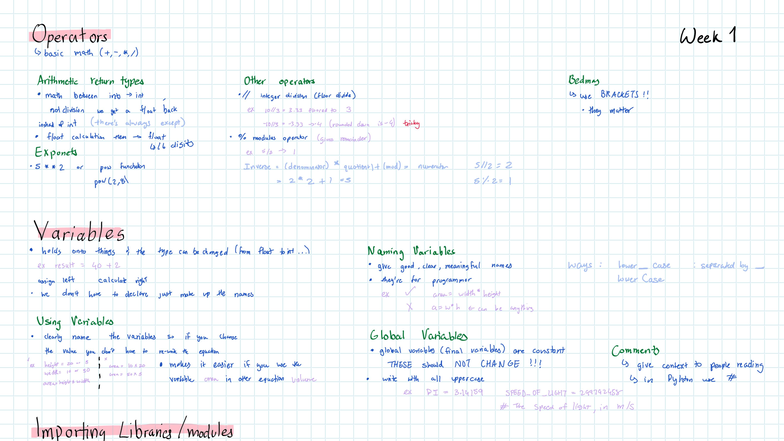 Operators
Week 1
↳ basic math (+,-,*,/)
Arithmetic return types
• math between ints → int
not division we get a float back
instead of int (there's always except)
• float calculation → float
↳ 16 digits
Exponets
• 5 ** 2 or pow function
pow(2,8)
Other operators
• // integer division (floor divide)
ex 10//3 = 3.33 floored to 3
-10//3 = -3.33 → -4 (rounded down is -4) tricky
• % modulus operator (gives remainder)
ex 5%2 → 1
Inverse = (denominator) * quotient) + (mod) = numerator
= 2 * 2 + 1 = 5
5//2 = 2
5%2 = 1
Bedmas
↳ use BRACKETS!!
• they matter
Variables
• holds onto things & the type can be changed (from float to int ...)
ex result = 40 + 2
assign left calculate right
• we don't have to declare just make up the names
Naming Variables
• give good, clear, meaningful names
• they're for programmer
ex ✓ area = width * height
X a = w * h a can be anything
Ways: lower_case : seperated by _
lower Case
Using Variables
• clearly name the variables so if you change
the value you don't have to re-write the equation
• makes it easier if you use the
variable area in other equation volume
Global Variables
• global variables (final variables) are constant
THESE should NOT CHANGE !!!
• write with all uppercase
ex PI = 3.14159 SPEED_OF_LIGHT = 299792458
# The speed of light, in m/s
Comments
↳ give context to people reading
↳ in Python use #
Importing Libraries/modules